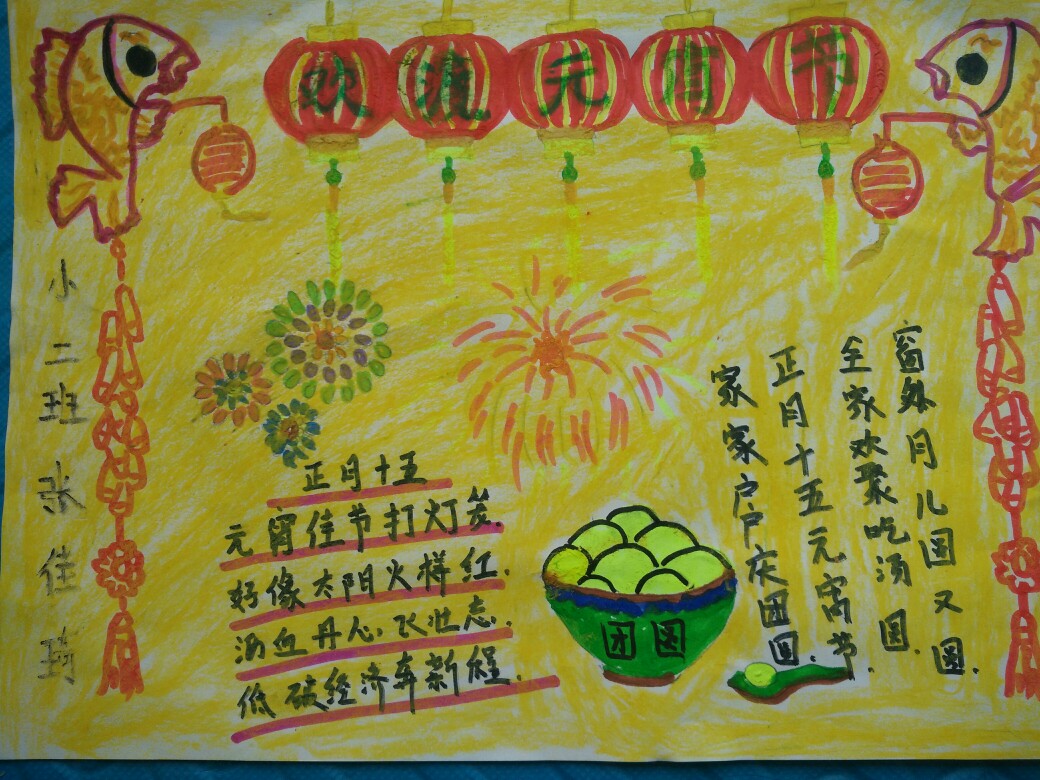 欢渡元宵节
小二班张佳琦
正月十五
元宵佳节打灯笼.
好像太阳火样红.
血丹心飞壮志.
低碳经济奔新程.
团圆
窗外月儿圆又圆.
全家欢聚吃汤圆.
正月十五元宵节.
家家户户庆团圆.